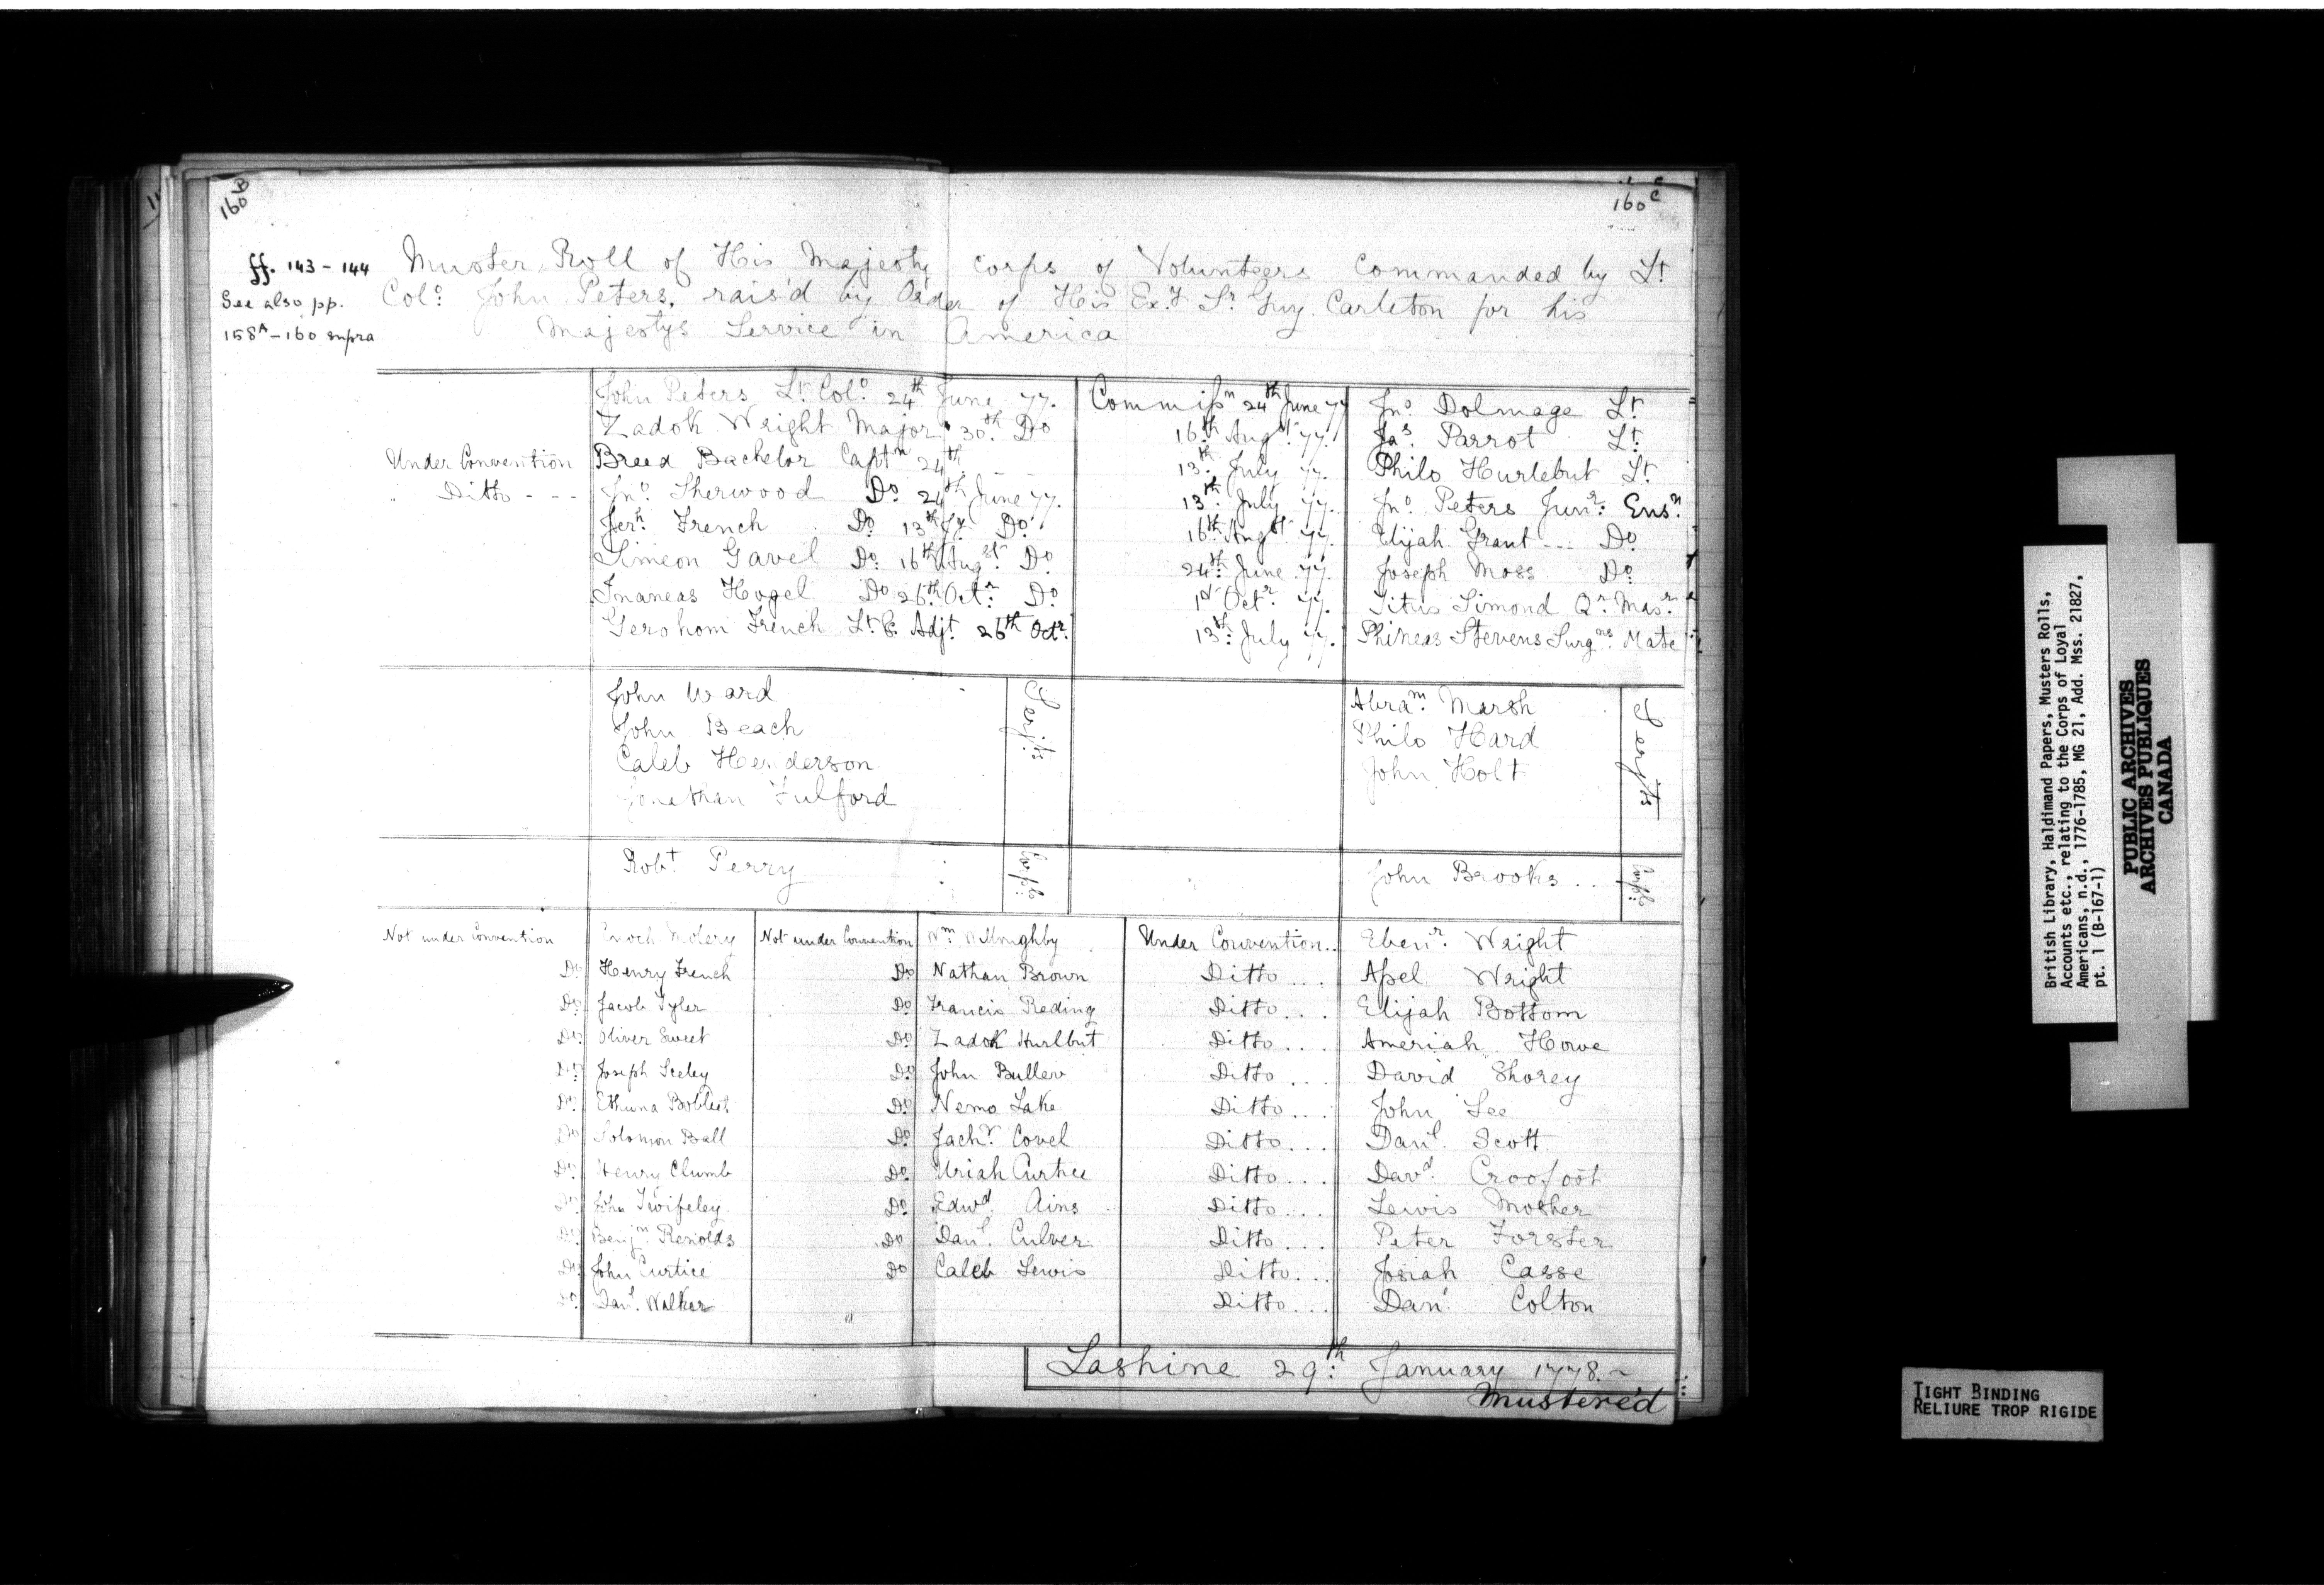 160 B
160 C
ff. 143 - 144
See also pp.
158A - 160 supra
Muster Roll of His Majesty corps of Volunteers Commanded by Lt
Colo: John Peters, rais'd by Order of His Ex.y Sr Guy Carleton for his
Majestys Service in America
John Peters Lt. Colo. 24th June 77. Commissn 24th June 77 Jno. Dolmage Lt.
Zadok Wright Major 30th. Do 16th Augst 77. Jas. Parrot Lt.
Under Convention Breed Bachelor Captn 24th. - - 13th. July 77. Philo Hurlebut Lt
Ditto - - - Jno. Sherwood Do 24th June 77. 13th. July 77. Jno. Peters Junr. Ensn.
Jerh. French Do 13th Jy. Do 16th. Augst 77. Elijah Grant --- Do
Simeon Gavel Do 16th Augst. Do 24th. June 77. Joseph Moss Do
Inaneas Hogel Do 26th. Octr. Do 1st Octr. 77. Titus Simond Qr. Masr.
Geroham French Lt. & Adjt. 26th Octr. 13th. July 77. Phineas Stevens Surgns. Mate
John Ward Serjts Abram. Marsh Serjts
John Beach Philo Hard
Caleb Henderson John Holt
Jonathan Fulford
Robt Perry Corpl. John Brooks .. Corpl.
Not under Convention Enoch Not under Convention Wm Willoughby Under Convention .. Ebenr. Wright
Do Henry French Do Nathan Brown Ditto ... Asel Wright
Do Jacob Tyler Do Francis Reding Ditto ... Elijah Bottom
Do Oliver Sweet Do Zadok Hurlbut Ditto ... Ameriah Howe
Do Joseph Seeley Do John Buller Ditto ... David Shorey
Do Ethuna Do Nemo Lake Ditto ... John Lee
Do Solomon Ball Do Jachr. Covel Ditto ... Danl. Scott
Do Henry Clumb Do Uriah Curtice Ditto ... Davd. Croofoot
Do John Twifeley Do Edwd. Ains Ditto ... Lewis Mosher
Do Benjm Renolds Do Danl. Culver Ditto ... Peter Forster
Do John Curtice Do Caleb Lewis Ditto ... Josiah Casse
Do Danl. Walker Ditto ... Danl. Colton
Lashine 29th: January 1778. ~
Muster'd
British Library, Haldimand Papers, Musters Rolls,
Accounts etc., relating to the Corps of Loyal
Americans, n.d., 1776-1785, MG 21, Add. Mss. 21827,
pt. 1 (B-167-1)
PUBLIC ARCHIVES
ARCHIVES PUBLIQUES
CANADA
TIGHT BINDING
RELIURE TROP RIGIDE